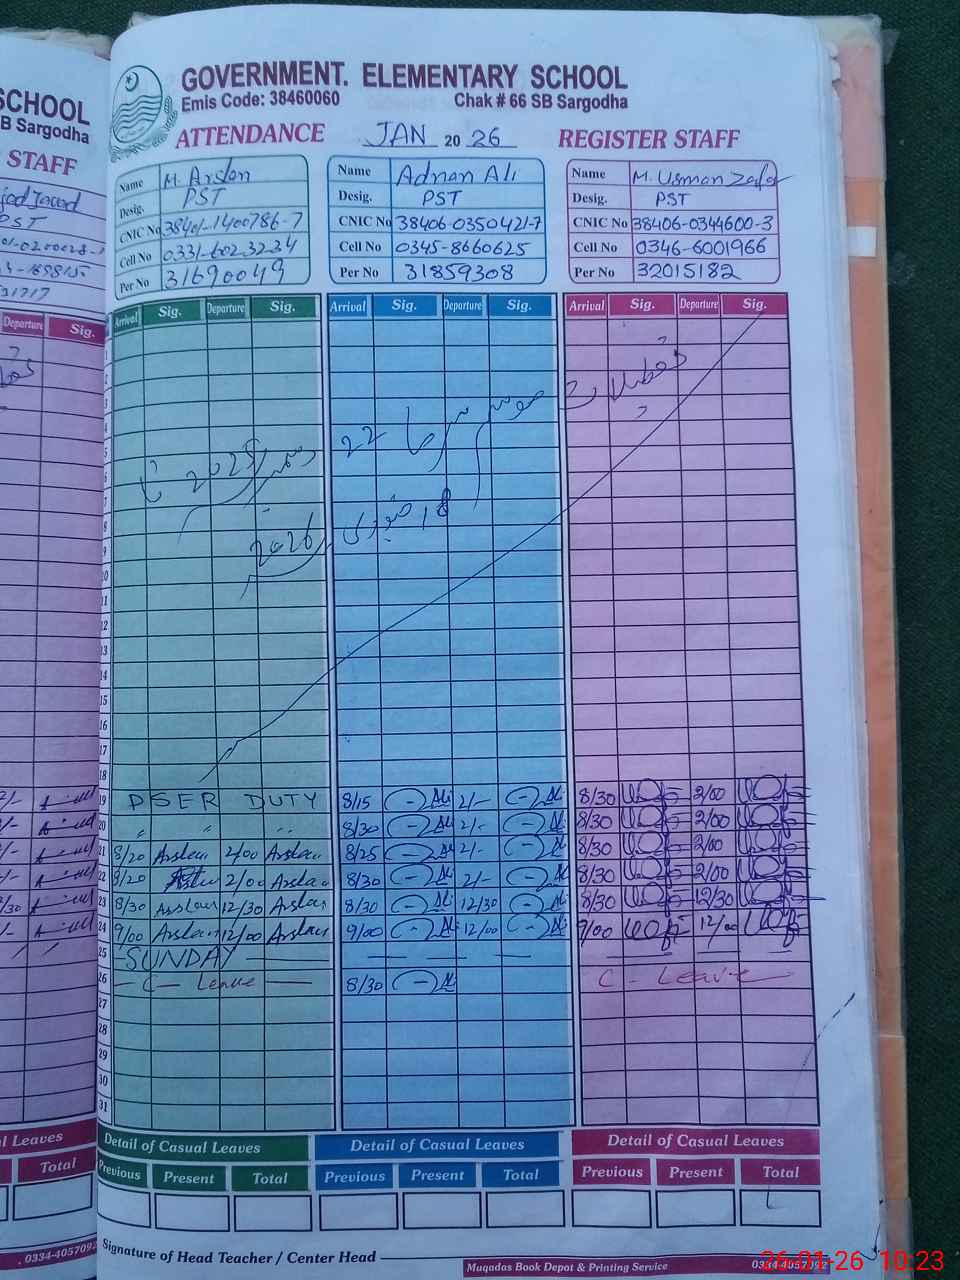 SCHOOL
B Sargodha
STAFF
PST
Departure Sig.
l Leaves
Total
0334-4057092
GOVERNMENT. ELEMENTARY SCHOOL
Emis Code: 38460060 Chak # 66 SB Sargodha
ATTENDANCE JAN 2026 REGISTER STAFF
Name M. Arslan
Desig. PST
CNIC No 38401-1400786-7
Cell No 0331-6023234
Per No 31690049
Name Adnan Ali
Desig. PST
CNIC No 38406-0350421-7
Cell No 0345-8660625
Per No 31859308
Name M. Usman Zafar
Desig. PST
CNIC No 38406-0344600-3
Cell No 0346-6001966
Per No 32015182
Arrival Sig. Departure Sig. Arrival Sig. Departure Sig. Arrival Sig. Departure Sig.
تعطیلات موسم سرما 22 دسمبر 2025 تا
18 جنوری 2026
1
2
3
4
5
6
7
8
9
10
11
12
13
14
15
16
17
18
19 PSER DUTY 8/15 Ali 2/- Ali 8/30 2/00
20 " " " 8/30 Ali 2/- Ali 8/30 2/00
21 8/20 Arslan 2/00 Arslan 8/25 Ali 2/- Ali 8/30 2/00
22 8/20 Arslan 2/00 Arslan 8/30 Ali 2/- Ali 8/30 2/00
23 8/30 Arslan 12/30 Arslan 8/30 Ali 12/30 Ali 8/30 12/30
24 9/00 Arslan 12/00 Arslan 9/00 Ali 12/00 Ali 9/00 12/00
25 SUNDAY
26 C - Leave 8/30 Ali C - Leave
27
28
29
30
31
Detail of Casual Leaves Detail of Casual Leaves Detail of Casual Leaves
Previous Present Total Previous Present Total Previous Present Total
Signature of Head Teacher / Center Head
Muqadas Book Depot & Printing Service 0334-4057092
26-01-26 10:23